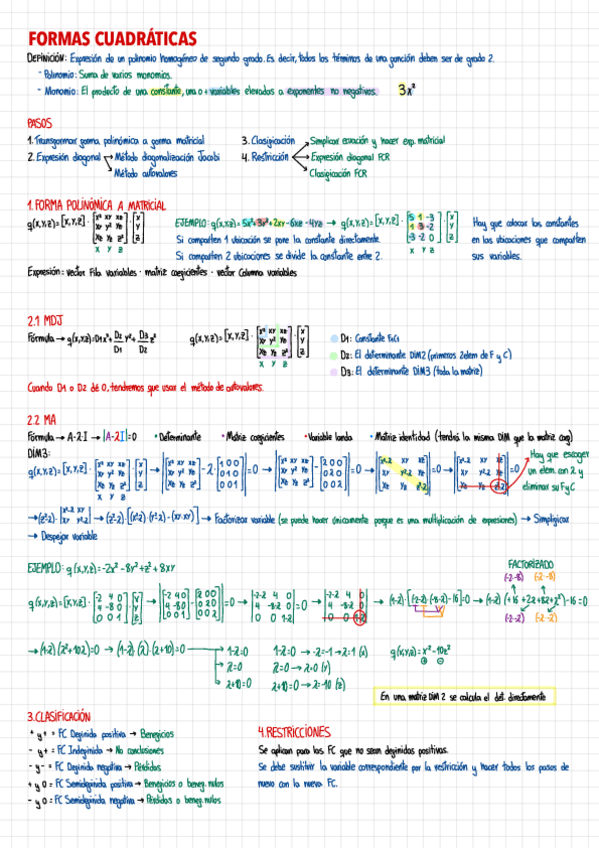 FORMAS CUADRÁTICAS
DEFINICIÓN: Expresión de un polinomio homogéneo de segundo grado. Es decir, todos los términos de una función deben ser de grado 2.
- Polinomio: Suma de varios monomios.
- Monomio: El producto de una constante, una o + variables elevadas a exponentes no negativos. 3x²
PASOS
1. Transformar forma polinómica a forma matricial
2. Expresión diagonal → Método diagonalización Jacobi
Método autovalores
3. Clasificación
4. Restricción
Simplificar ecuación y hacer exp. matricial
Expresión diagonal FCR
Clasificación FCR
1. FORMA POLINÓMICA A MATRICIAL
EJEMPLO: q(x,y,z)=5x²+3y²+2xy-6xz-4yz → q(x,y,z)=[x,y,z]·
5 1 -3
1 3 -2
-3 -2 0
Si comparten 1 ubicación se pone la constante directamente.
Si comparten 2 ubicaciones se divide la constante entre 2.
Hay que colocar las constantes
en las ubicaciones que comparten
sus variables.
Expresión: vector Fila variables · matriz coeficientes · vector Columna variables
2.1 MDJ
Fórmula → q(x,y,z)=D1x²+D2/D1 y²+D3/D2 z²
D1: Constante F1C1
D2: El determinante DIM2 (primeros 2elem de F y C)
D3: El determinante DIM3 (toda la matriz)
Cuando D1 o D2 dé 0, tendremos que usar el método de autovalores.
2.2 MA
Fórmula → A-λ·I → |A-λI|=0 • Determinante • Matriz coeficientes • Variable landa • Matriz identidad (tendrá la misma DIM que la matriz coef)
DIM3:
Hay que escoger
un elem. con λ y
eliminar su F y C
→ Factorizar variable (se puede hacer únicamente porque es una multiplicación de expresiones) → Simplificar
→ Despejar variable
EJEMPLO: q(x,y,z)=-2x²-8y²+z²+8xy
FACTORIZADO
→(1-λ)(λ²+10λ)=0 → (1-λ)·(λ)·(λ+10)=0
1-λ=0
λ=0
λ+10=0
1-λ=0 → -λ=-1 → λ=1 (x)
λ=0 → λ=0 (y)
λ+10=0 → λ=-10 (z)
q(x,y,z)=x²-10z²
En una matriz DIM 2 se calcula el det. directamente
3. CLASIFICACIÓN
+ y + = FC Definida positiva → Beneficios
- y + = FC Indefinida → No conclusiones
- y - = FC Definida negativa → Pérdidas
+ y 0 = FC Semidefinida positiva → Beneficios o benef. nulos
- y 0 = FC Semidefinida negativa → Pérdidas o benef. nulos
4. RESTRICCIONES
Se aplican para las FC que no sean definidas positivas.
Se debe sustituir la variable correspondiente por la restricción y hacer todos los pasos de
nuevo con la nueva FC.